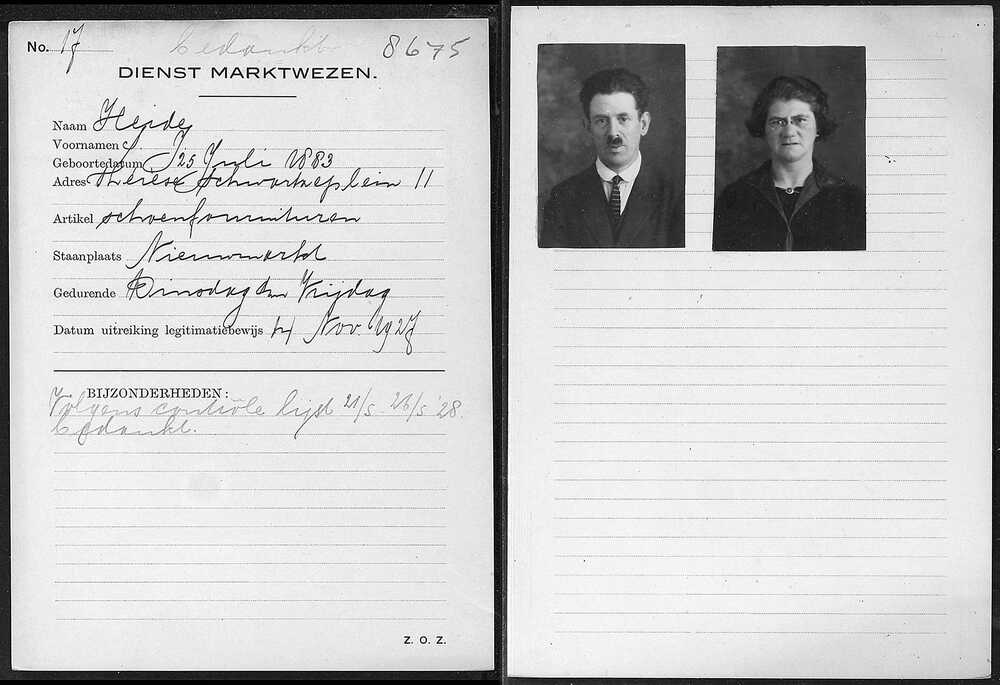 No. 17 Bedankt 8675
DIENST MARKTWEZEN.
Naam Heide
Voornamen C.
Geboortedatum 25 Juli 1883
Adres Therese Schwartzeplein 11
Artikel schoenfournituren
Staanplaats Nieuwmarkt
Gedurende Dinsdag en Vrijdag
Datum uitreiking legitimatiebewijs 14 Nov. 1927
BIJZONDERHEDEN:
Volgens contrôle lijst 21/5 - 26/5 '28.
Bedankt.
Z. O. Z.